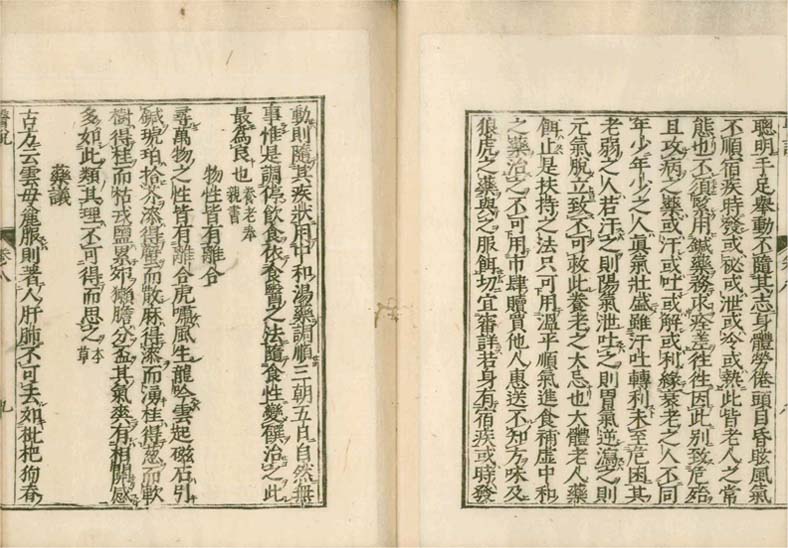 聰明手足舉動不隨其志身體勞倦頭目昏眩風氣
不順宿疾時發或秘或泄或冷或熱此皆老人之常
態也不須緊用鍼藥務求痊差往往因此別致危殆
且攻病之藥或汗或吐或解或利緣衰老之人不同
年少年少之人眞氣壯盛雖汗吐轉利未至危困其
老弱之人若汗之則陽氣泄吐之則胃氣逆瀉之則
元氣脫立致不可救此養老之大忌也大體老人藥
餌止是扶持之法只可用溫平順氣進食補虛中和
之藥治之不可用市肆贖買他人惠送不知方味及
狼虎之藥與之服餌切宜審詳若身有宿疾或時發
動則隨其疾狀用中和湯藥調順三朝五日自然無
事惟是調停飲食依食醫之法隨食性變饌治之此
最爲良也 養老奉親書
物性皆有離合
尋萬物之性皆有離合虎嘯風生龍吟雲起磁石引
鍼琥珀拾芥漆得蟹而散麻得漆而湧桂得葱而軟
樹得桂而枯戎鹽累卵獺膽分盃其氣爽有相關感
多如此類其理不可得而思之 本草
藥議
古方云雲母麄服則著人肝肺不可去如枇杷狗脊
醫說 卷八 九